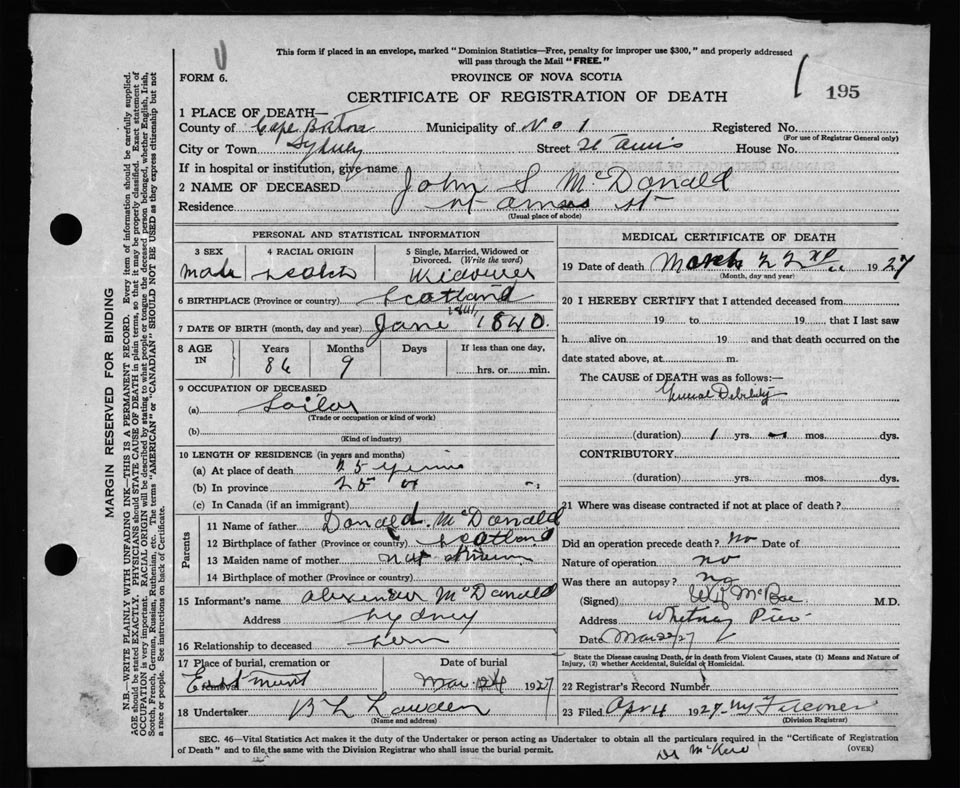 This form if placed in an envelope, marked "Dominion Statistics—Free, penalty for improper use $300," and properly addressed
will pass through the Mail "FREE."
FORM 6.
PROVINCE OF NOVA SCOTIA
CERTIFICATE OF REGISTRATION OF DEATH
195
1 PLACE OF DEATH—
County of Cape Breton Municipality of No 1 Registered No.
(For use of Registrar General only)
City or Town Sydney Street House No.
If in hospital or institution, give name
2 NAME OF DECEASED John S McDonald
Residence St
(Usual place of abode)
PERSONAL AND STATISTICAL INFORMATION
3 SEX
male
4 RACIAL ORIGIN
Scotch
5 Single, Married, Widowed or
Divorced. (Write the word)
Widower
6 BIRTHPLACE (Province or country) Scotland
7 DATE OF BIRTH (month, day and year) June 1840.
8 AGE
IN
Years
86
Months
9
Days
If less than one day,
hrs. or min.
9 OCCUPATION OF DECEASED
(a) Sailor
(Trade or occupation or kind of work)
(b)
(Kind of industry)
10 LENGTH OF RESIDENCE (in years and months)
(a) At place of death 25 years
(b) In province 25
(c) In Canada (if an immigrant)
Parents
11 Name of father Donald McDonald
12 Birthplace of father (Province or country) Scotland
13 Maiden name of mother not
14 Birthplace of mother (Province or country)
15 Informant's name Alexander McDonald
Address Sydney
16 Relationship to deceased
17 Place of burial, cremation or
removal
Date of burial
Mar 1927
18 Undertaker
(Name and address)
MEDICAL CERTIFICATE OF DEATH
19 Date of death March 22nd 1927
(Month, day and year)
20 I HEREBY CERTIFY that I attended deceased from
19 to 19 that I last saw
h alive on 19 and that death occurred on the
date stated above, at m.
The CAUSE of DEATH was as follows:—
General Debility
(duration) 1 yrs. mos. dys.
CONTRIBUTORY
(duration) yrs. mos. dys.
21 Where was disease contracted if not at place of death?
Did an operation precede death? No Date of
Nature of operation no
Was there an autopsy? no
(Signed) McRae M.D.
Address Whitney Pier
Date Mar 22/27
State the Disease causing Death, or in death from Violent Causes, state (1) Means and Nature of
Injury, (2) whether Accidental, Suicidal or Homicidal.
22 Registrar's Record Number
23 Filed Apr 4 1927
(Division Registrar)
SEC. 46—Vital Statistics Act makes it the duty of the Undertaker or person acting as Undertaker to obtain all the particulars required in the "Certificate of Registration
of Death" and to file the same with the Division Registrar who shall issue the burial permit.
(OVER)
MARGIN RESERVED FOR BINDING
N.B.—WRITE PLAINLY WITH UNFADING INK—THIS IS A PERMANENT RECORD. Every item of information should be carefully supplied.
AGE should be stated EXACTLY. PHYSICIANS should STATE CAUSE OF DEATH in plain terms, so that it may be properly classified. Exact statement of
OCCUPATION is very important. RACIAL ORIGIN will be described by stating to what people or tongue the deceased person belonged, whether English, Irish,
Scotch, French, German, Russian, Ruthenian, etc. The terms "AMERICAN" or "CANADIAN" SHOULD NOT BE USED as they express citizenship but not
a race or people. See instructions on back of Certificate.